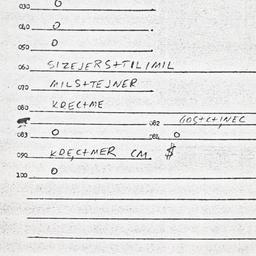 030 0
040 0
050 0
060 SIZEJERS+TILIMIL
070 MILS+EJNER
080 KRECHME
082 GOS+C+INEC
083 0 084 0
090 KRECHMER CM $
100 0